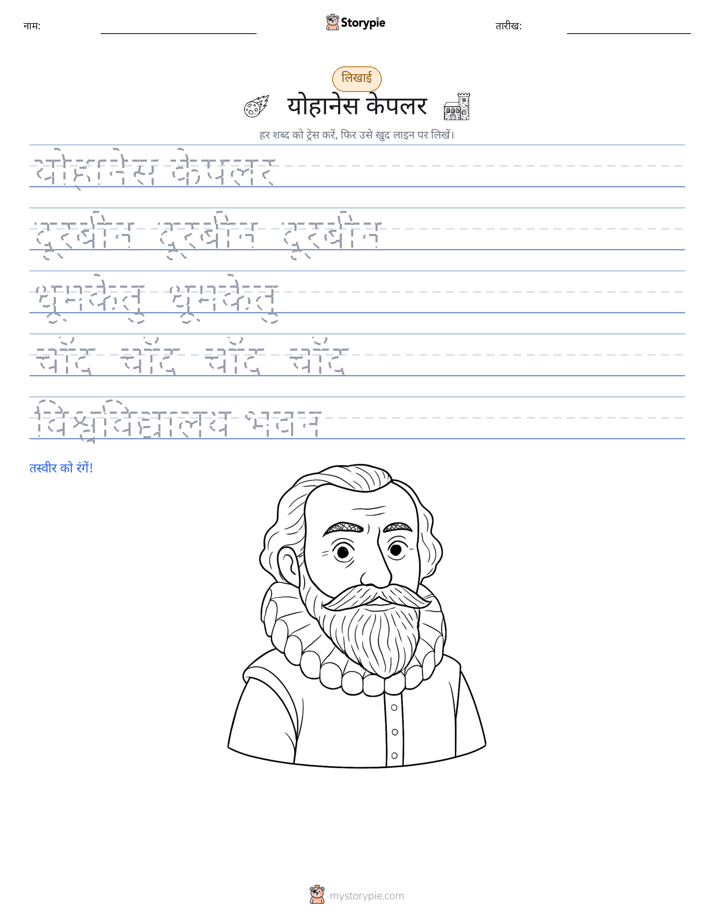 नाम:
Storypie
तारीख:
लिखाई
योहानेस केपलर
हर शब्द को ट्रेस करें, फिर उसे खुद लाइन पर लिखें।
योहानेस केपलर
दूरबीन दूरबीन दूरबीन
धूमकेतु धूमकेतु
चाँद चाँद चाँद चाँद
विश्वविद्यालय भवन
तस्वीर को रंगें!
mystorypie.com